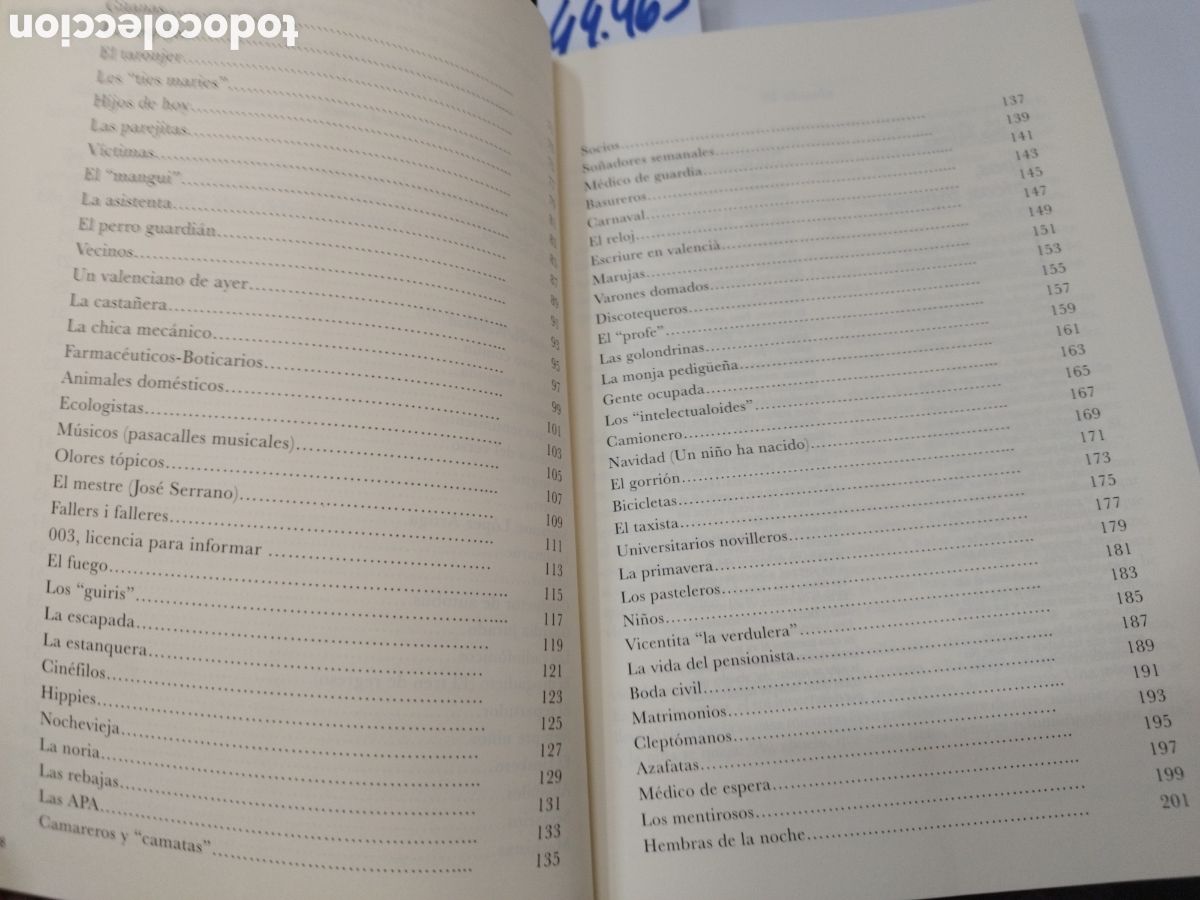 todocoleccion
49.465
Gitanas
El taronjer
Les "ties maries"
Hijos de hoy
Las parejitas
Víctimas
El "mangui" 85
La asistenta 87
El perro guardián 89
Vecinos 91
Un valenciano de ayer 93
La castañera 95
La chica mecánico 97
Farmacéuticos-Boticarios 99
Animales domésticos 101
Ecologistas 103
Músicos (pasacalles musicales) 105
Olores tópicos 107
El mestre (José Serrano) 109
Fallers i falleres 111
003, licencia para informar 113
El fuego 115
Los "guiris" 117
La escapada 119
La estanquera 121
Cinéfilos 123
Hippies 125
Nochevieja 127
La noria 129
Las rebajas 131
Las APA 133
Camareros y "camatas" 135
8
Socios 137
Soñadores semanales 139
Médico de guardia 141
Basureros 143
Carnaval 145
El reloj 147
Escriure en valencià 149
Marujas 151
Varones domados 153
Discotequeros 155
El "profe" 157
Las golondrinas 159
La monja pedigüeña 161
Gente ocupada 163
Los "intelectualoides" 165
Camionero 167
Navidad (Un niño ha nacido) 169
El gorrión 171
Bicicletas 173
El taxista 175
Universitarios novilleros 177
La primavera 179
Los pasteleros 181
Niños 183
Vicentita "la verdulera" 185
La vida del pensionista 187
Boda civil 189
Matrimonios 191
Cleptómanos 193
Azafatas 195
Médico de espera 197
Los mentirosos 199
Hembras de la noche 201